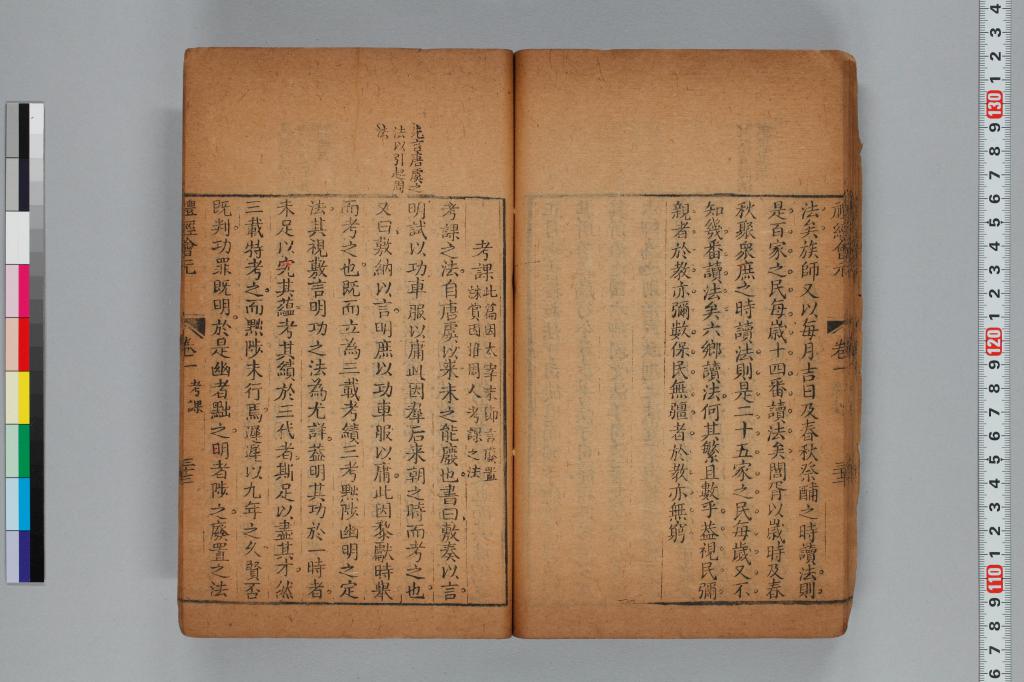 禮經會元
卷一
法矣族師又以每月吉日及春秋祭酺之時讀法則
是百家之民每歲十四番讀法矣閭胥以歲時及春
秋聚衆庶之時讀法則是二十五家之民每歲又不
知幾番讀法矣六鄉讀法何其繁且數乎益視民彌
親者於教亦彌數保民無疆者於教亦無窮
考課
此篇因太宰末卽言廢置
誅賞因推周人考課之法
先言唐虞之
法以引起周
法
考課之法自唐虞以來未之能廢也書曰敷奏以言
明試以功車服以庸此因羣后来朝之時而考之也
又曰敷納以言明庶以功車服以庸此因黎獻時舉
而考之也既而立為三載考績三考黜陟幽明之定
法其視敷言明功之法為尤詳益明其功於一時者
未足以究其蘊考其績於三代者斯足以盡其才然
三載特考之而黜陟未行焉遲遲以九年之久賢否
既判功罪既明於是幽者黜之明者陟之廢置之法
禮經會元
卷一
考課